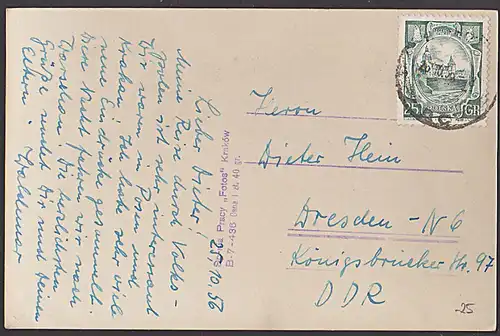 24.10.56
Lieber Dieter!
Meine Reise durch Volks-
polen ist sehr interessant
Wir waren in Posen und
Krakau. Ich habe sehr viele
neue Eindrücke gesammelt.
Diese Nacht fahren wir nach
Warschau. Die herzlichsten
Grüße sendet Dir und Deinen
Eltern. Waldemar
Pracy „Fotos” Kraków
B-7-436 Cena 1 zł. 40 gr.
25 GR
Herrn
Dieter Hein
Dresden - N 6
Königsbrücker Str. 97
DDR
-25